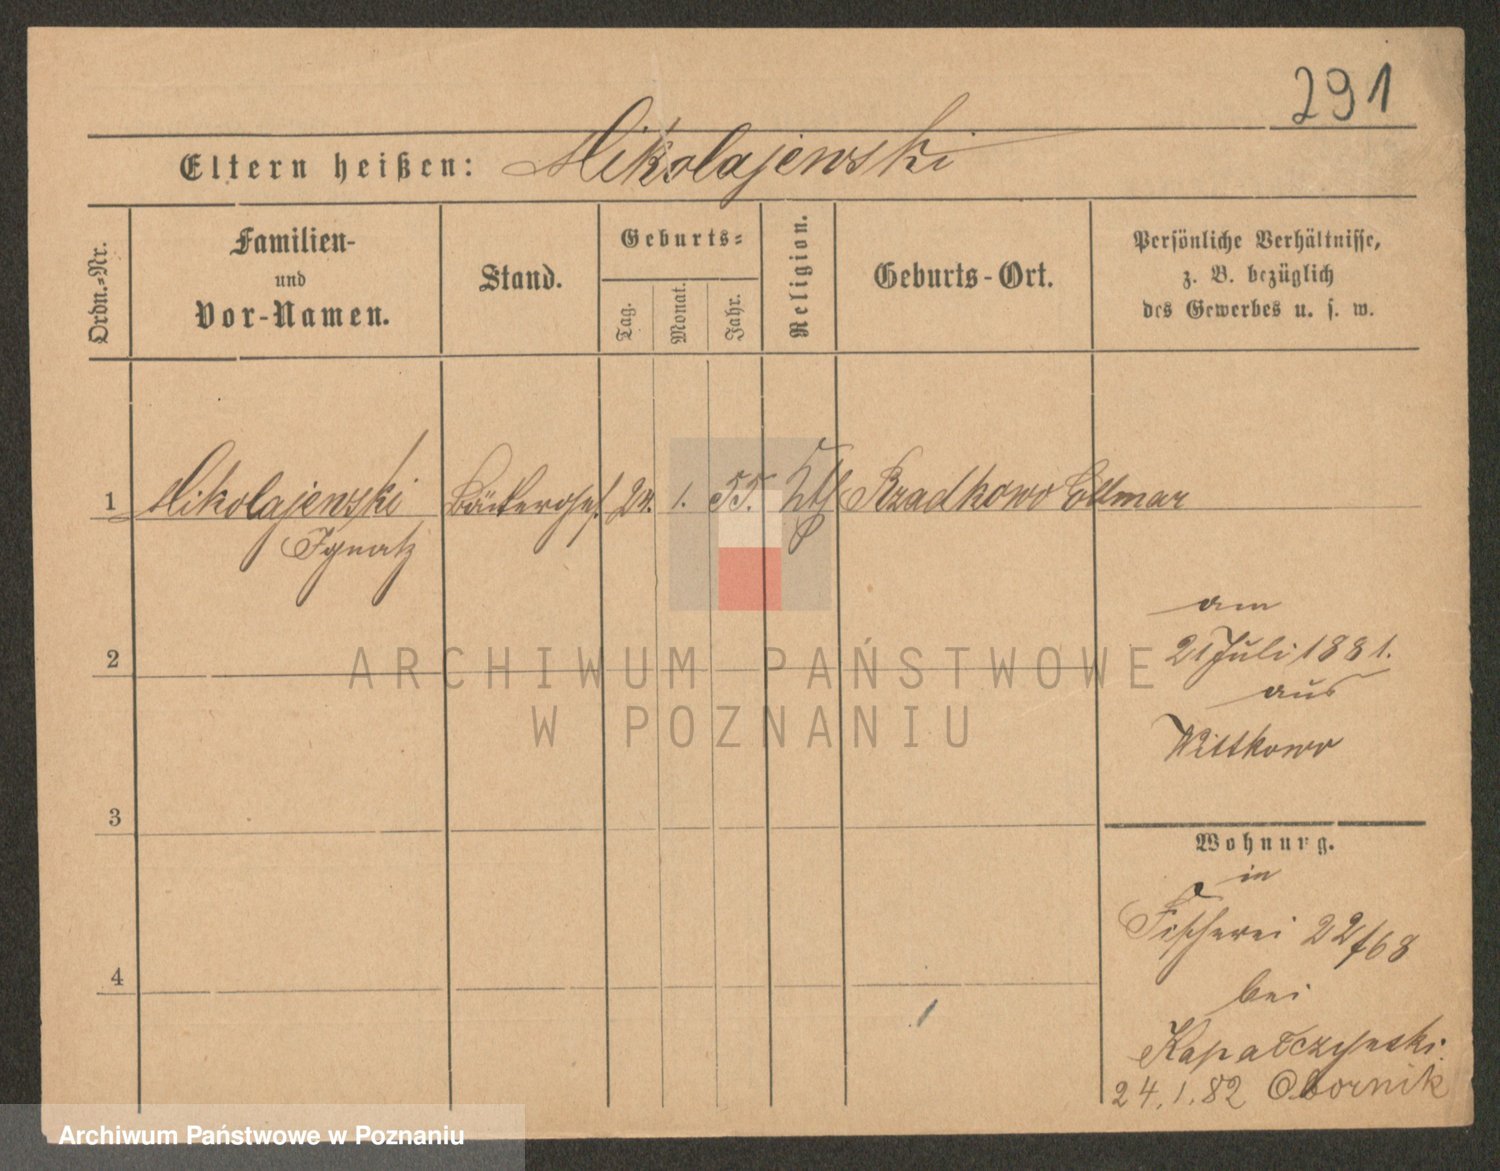 291
Eltern heißen: Mikolajewski
Ordn.-Nr.
Familien-
und
Vor-Namen.
Stand.
Geburts-
Tag.
Monat.
Jahr.
Religion.
Geburts-Ort.
Persönliche Verhältnisse,
z. B. bezüglich
des Gewerbes u. s. w.
1 Mikolajewski Bäckerges. 24. 1. 55. Kth Rzadkowo Collmar
Ignatz
am
2
21 Juli 1881.
aus
Wittkowo
3
Wohnung.
in
Fischerei 22/68
4
bei
Kapałczynski
24.1.82 Obornik
ARCHIWUM PAŃSTWOWE
W POZNANIU
Archiwum Państwowe w Poznaniu